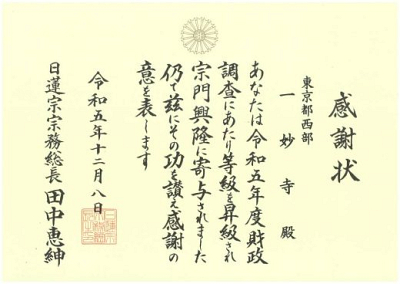 感謝状
東京都西部
一妙寺殿
あなたは令和五年度財政
調査にあたり等級を昇級され
宗門興隆に寄与されました
仍て茲にその功を讃え感謝の
意を表します
令和五年十二月八日
日蓮宗宗務総長 田中恵紳